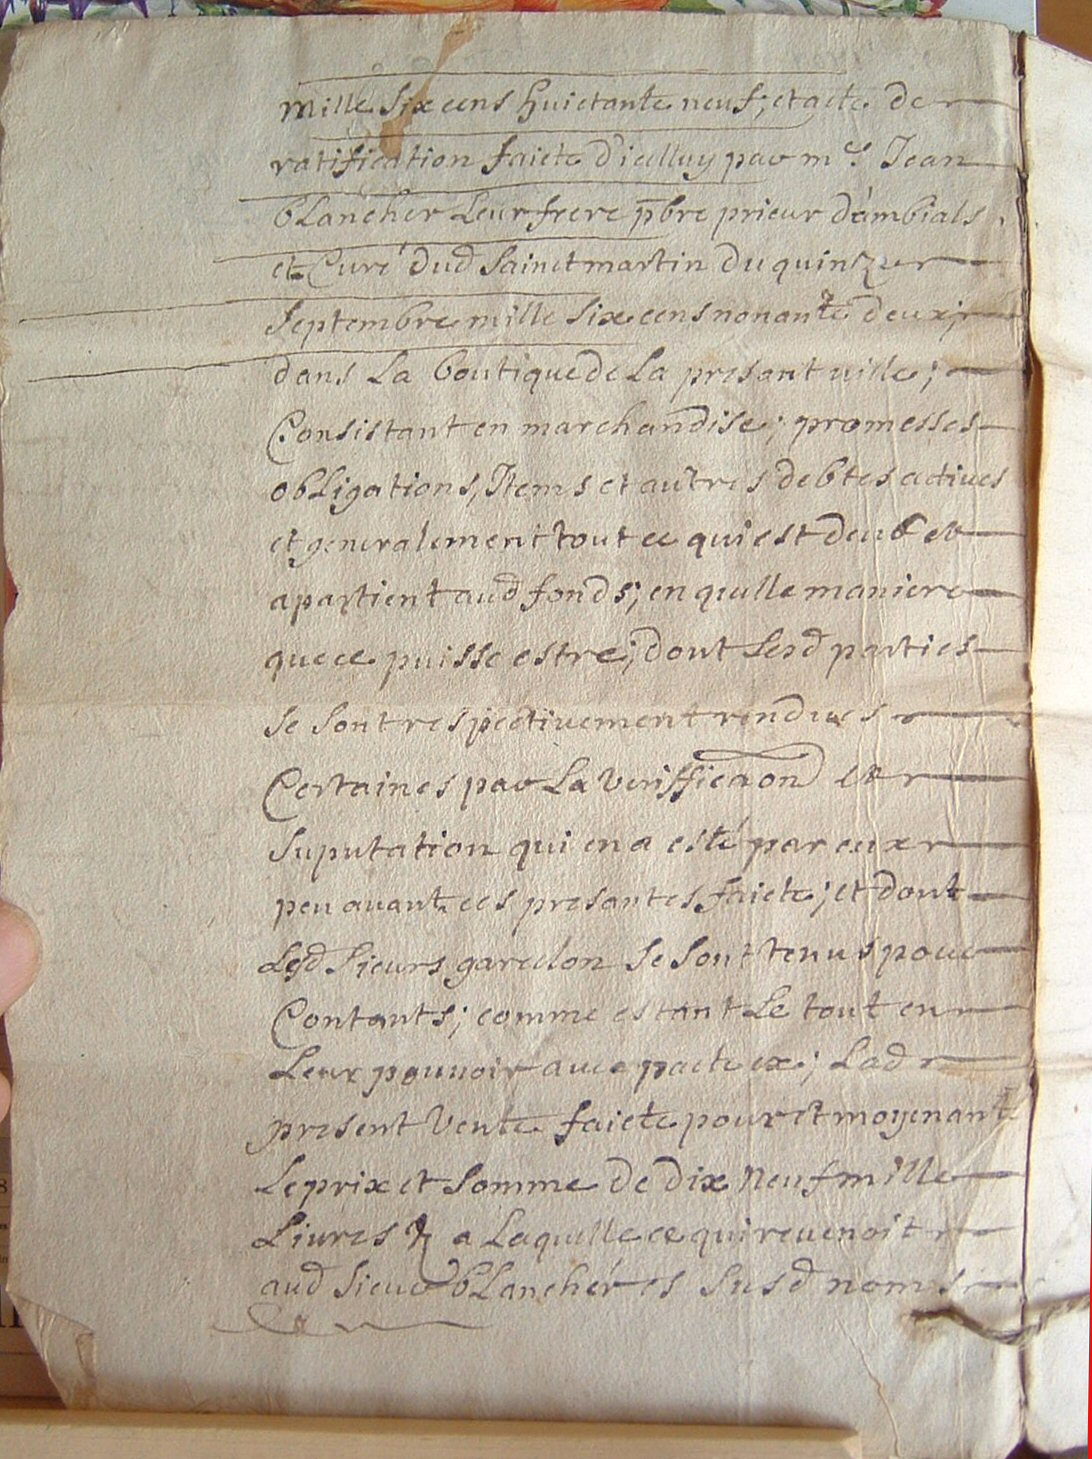 mille six cens huictante neuf; et acte de
ratification faicte d'icelluy par mr Jean
blancher Leur frere pbre prieur d'ambials
et Curé dud Sainct martin du quinze
septembre mille six cens nonante deux;
dans La boutique de La presant ville;
Consistant en marchandise; promesses
obLigations, Items et autres debtes actives
et generalement tout ce qui est deub et
apartient aud fonds; en quelle maniere
que ce puisse estre; dont Lesd parties
se sont respectivement rendues
Certaines par La veriffica​on et
suputation qui en a esté par eux
peu avant ces presantes faicte; et dont
Lesd Sieurs garelon se sont tenus pour
Contants; comme estant Le tout en
Leur pouvoir avec pacte ex; Lad
present Vente faicte pour et moyenant
Le prix et somme de dix neuf mille
Livres a Laquelle ce qui revenoit
aud Sieur bLanchér es susd noms